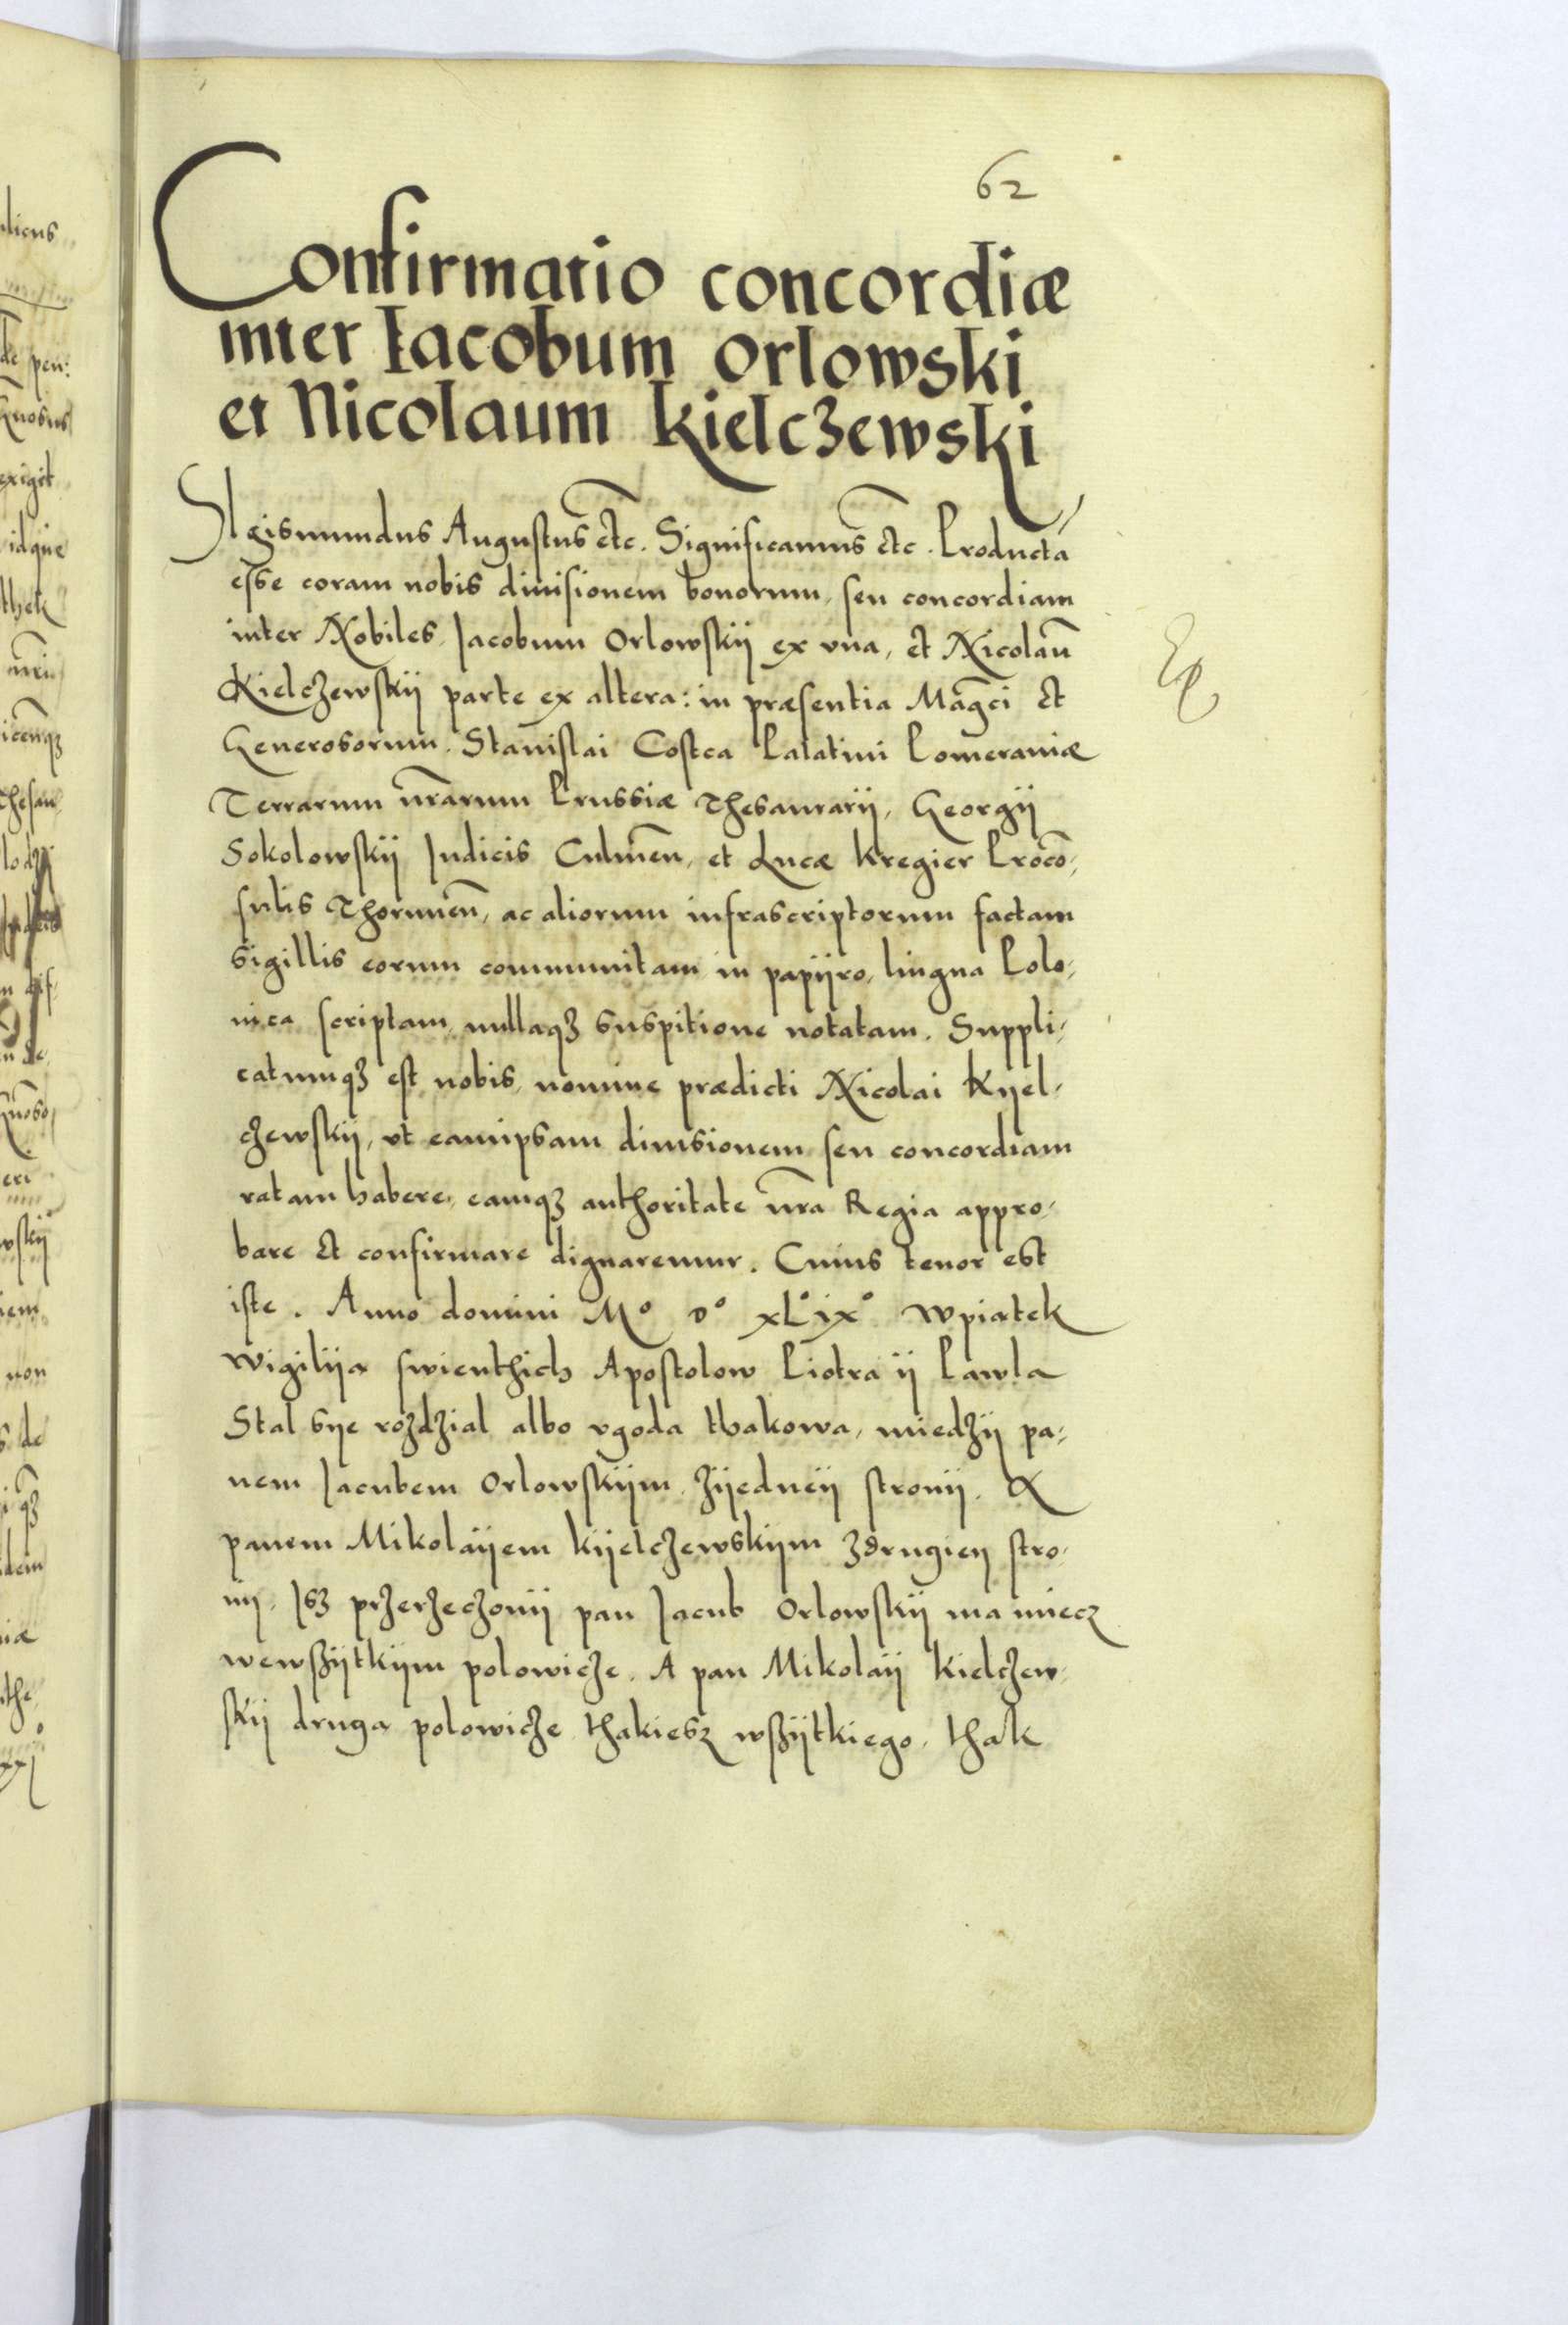 62
Confirmatio concordiæ
inter Iacobum Orlowski
et Nicolaum Kielczewski
SIgismundus Augustus etc. Significamus etc. Productā
esse coram nobis diuisionem bonorum, seu concordiam
inter Nobiles Iacobum Orlowskij ex vna, et Nicolaū
Kielczewskij parte ex altera: in præsentia Magci et
Generosorum. Stanislai Costca Palatini Pomeraniæ
Terrarum nrārum Prussiæ Thesaurarij, Georgij
Sokolowskij Iudicis Culmeñ, et Lucæ Kregier Procō,
sulis Thoruneñ, ac aliorum infrascriptorum factam
sigillis eorum communitam in papijro, lingua Polo,
nica scriptam, nullaqȝ suspitione notatam. Suppli,
catumqȝ est nobis, nomine prædicti Nicolai Kyel,
czewskij, vt eamipsam diuisionem seu concordiam
ratam habere, eamqȝ authoritate nrā Regia appro,
bare et confirmare dignaremur. Cuius tenor est
iste. Anno domini Mº Dº xLº ixº Wpiatek
Wigilija swienthich Apostolow Piotra ij Pawla
Stal sye rozdzial albo vgoda thakowa, miedzij pa,
nem Jacubem Orlowskijm, zijedneij stronij. A
panem Mikolaijem Kijelczewskijm zdrugiey stro,
nij. Isz przerzeczonij pan Jacub Orlowskij ma miecz
wewszijtkijm polowicze. A pan Mikolaij Kielczew,
skij druga polowicze thakiesz wszijtkiego, thak